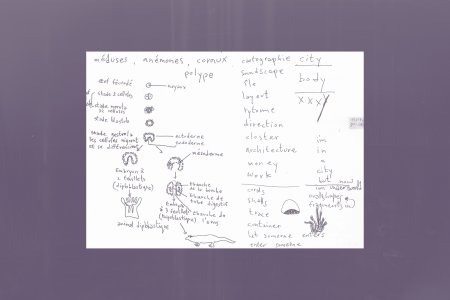 méduses, anémones, coraux
polype
œuf fécondé
noyau
stade 2 cellules
stade morula
32 cellules
stade blastula
stade gastrula
les cellules migrent
et se différencient
ectoderme
endoderme
mésoderme
Embryon à
2 feuillets
(diploblastique)
Ebauche
de la bouche
Ebauche
de tube digestif
Embryon
à 3 feuillets
(triploblastique)
Ebauche de
l'anus
animal diploblastique
cartographie
soundscape
file
layout
rythme
direction
cluster
architecture
money
work
city
body
XXXX
im
in
a
city
but now
im underwords
cards
shells
trace
container
let someone enters
enter someone